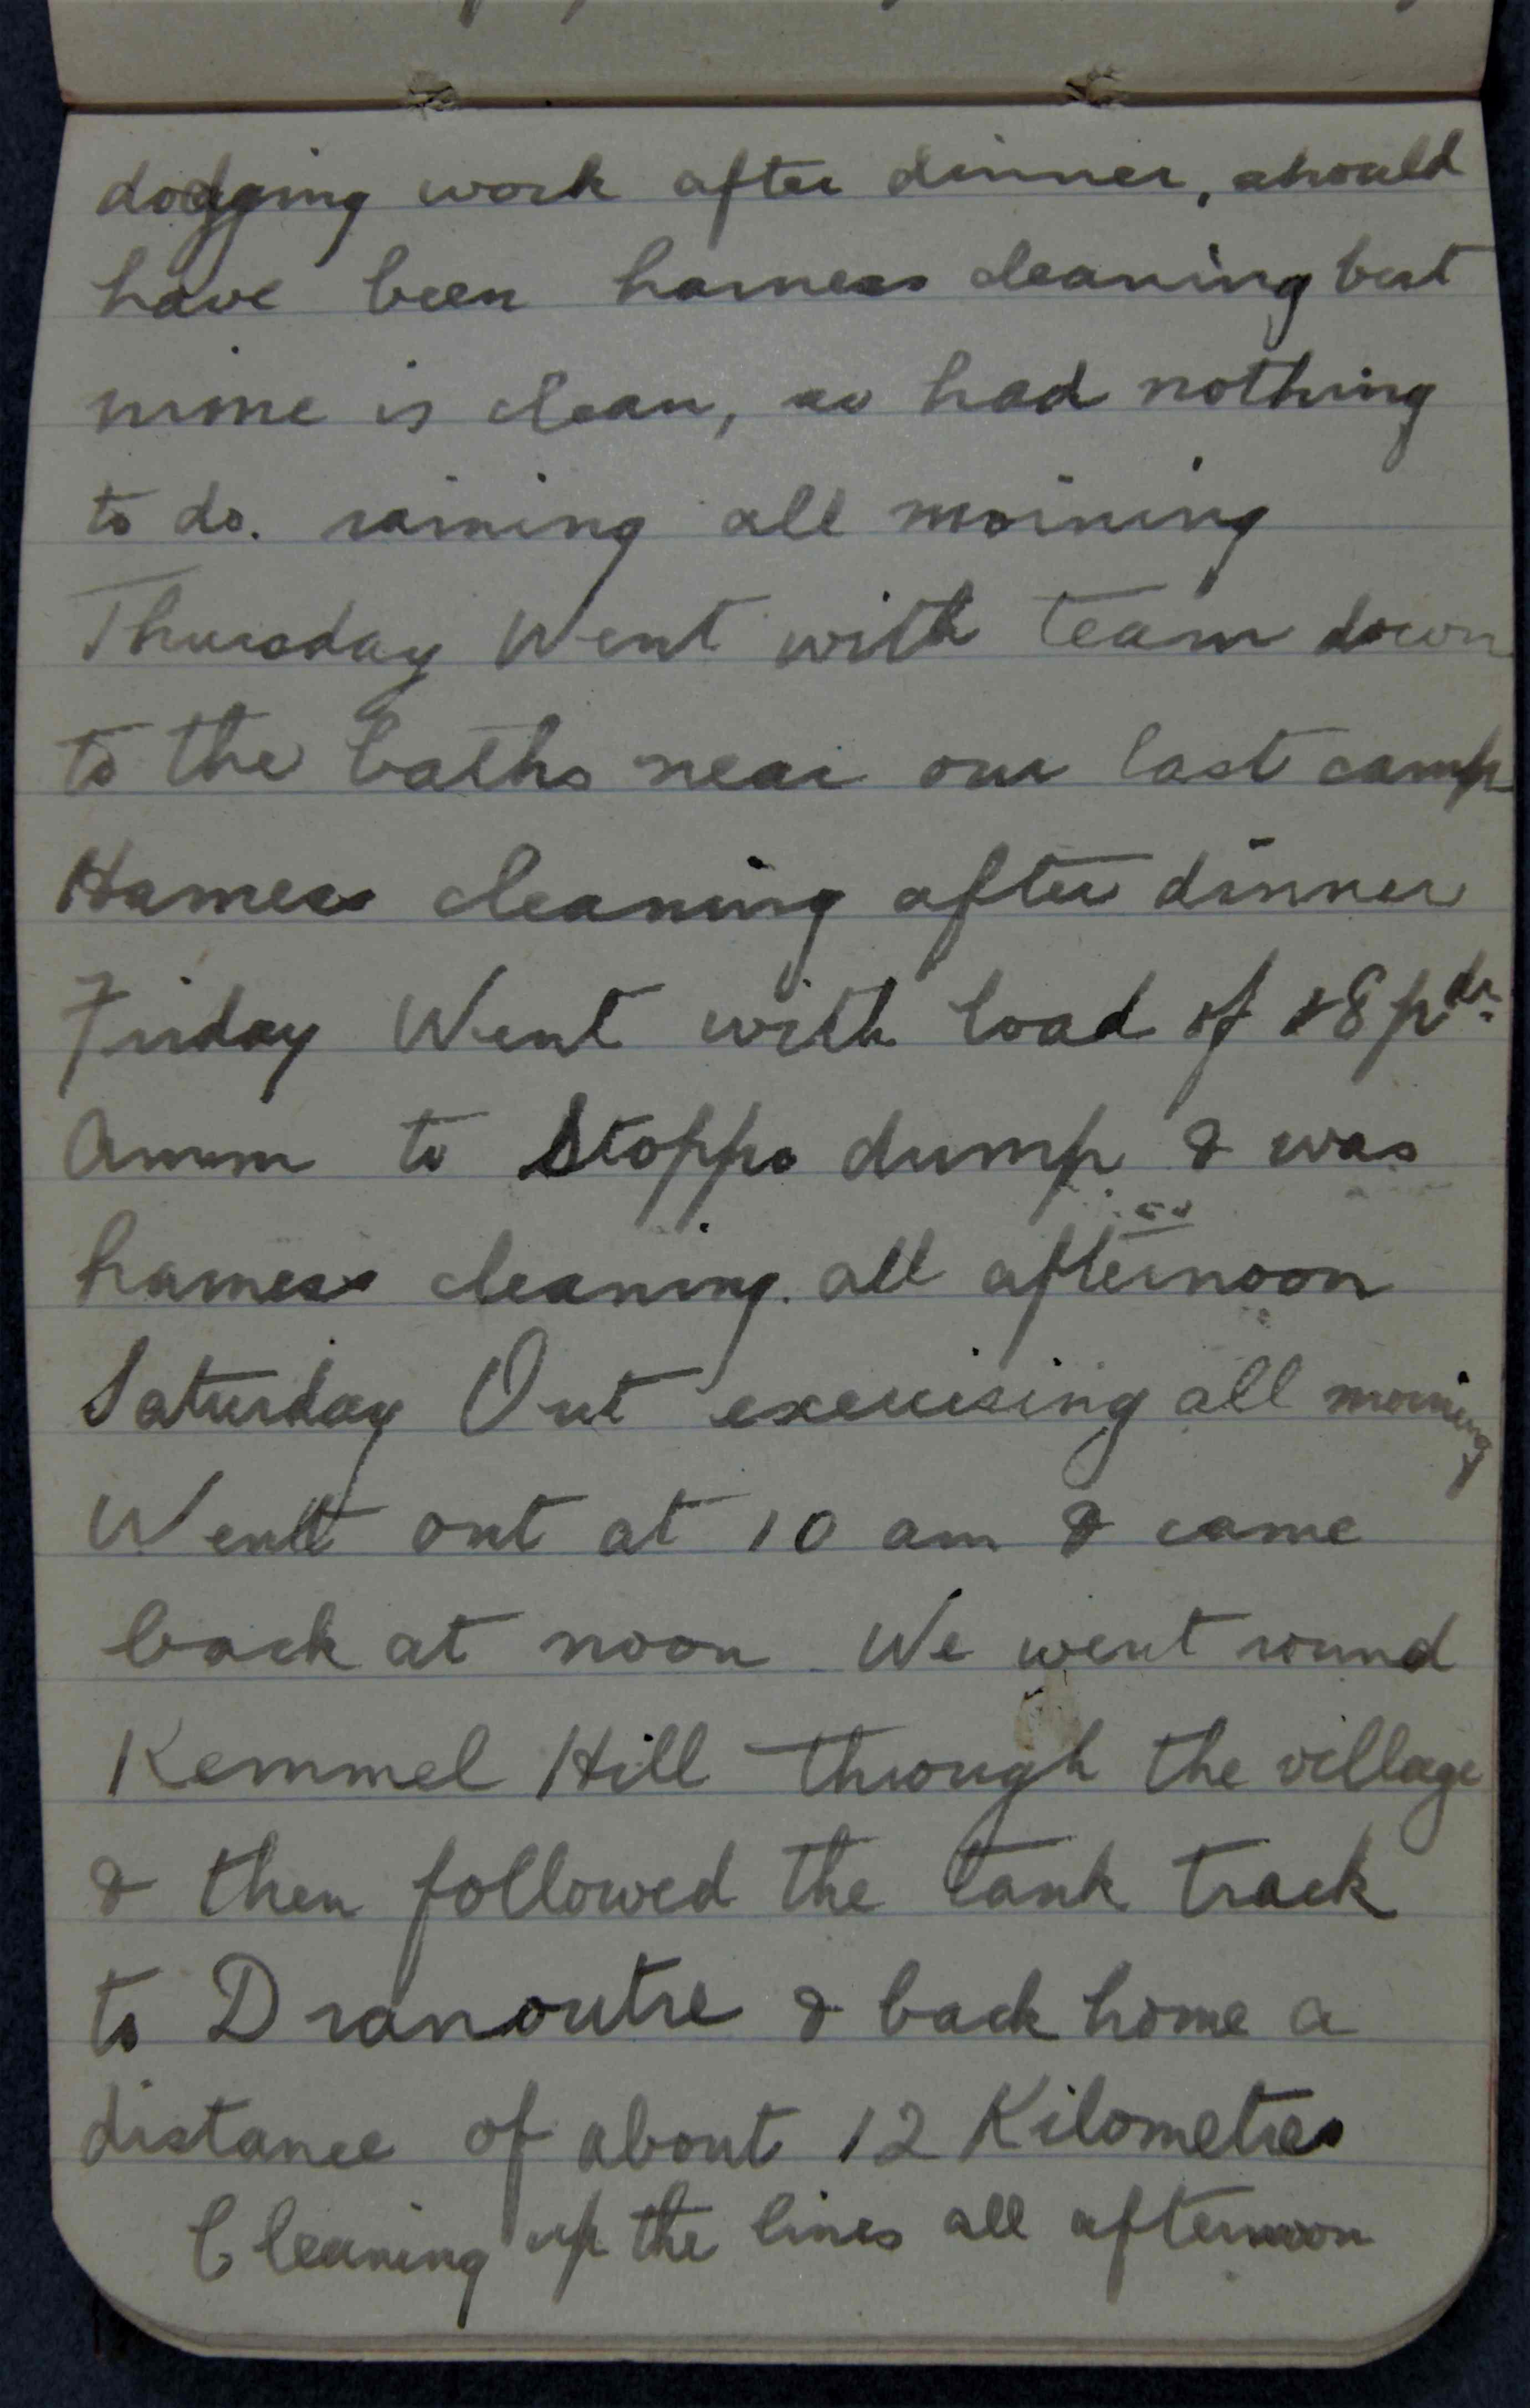 dodging work after dinner, should
have been harness cleaning but
mine is clean, so had nothing
to do. raining all morning
Thursday Went with team down
to the baths near our last camp
Harness cleaning after dinner
Friday Went with load of 18 pdr.
Amm to Stopps dump & was
harness cleaning. all afternoon
Saturday Out exercising all morning
Went out at 10 am & came
back at noon We went round
Kemmel Hill through the village
& then followed the tank track
to Dranoutre & back home a
distance of about 12 Kilometres
Cleaning up the lines all afternoon